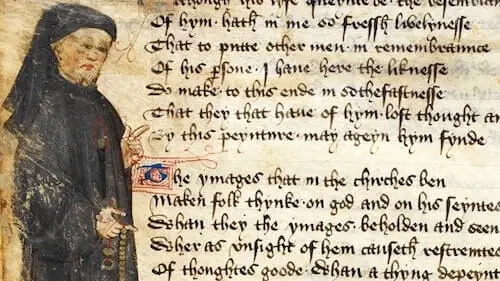 though his life queynte be · the resemblan
Of hym · hath in me so fressh lyflynesse
That to putte other men · in remembraunce
Of his psone · I haue here the liknesse
Do make · to this ende in sothfastnesse
That they that haue of hym · lost thought an
By this peynture · may ageyn hym fynde
The ymages that in the chirches ben
Maken folk thynke · on god and on his seyntes
Whan they the ymages · beholden and seen
Wher as vnsight of hem causeth restreinte
Of thoughtes goode · Whan a thyng depeynt